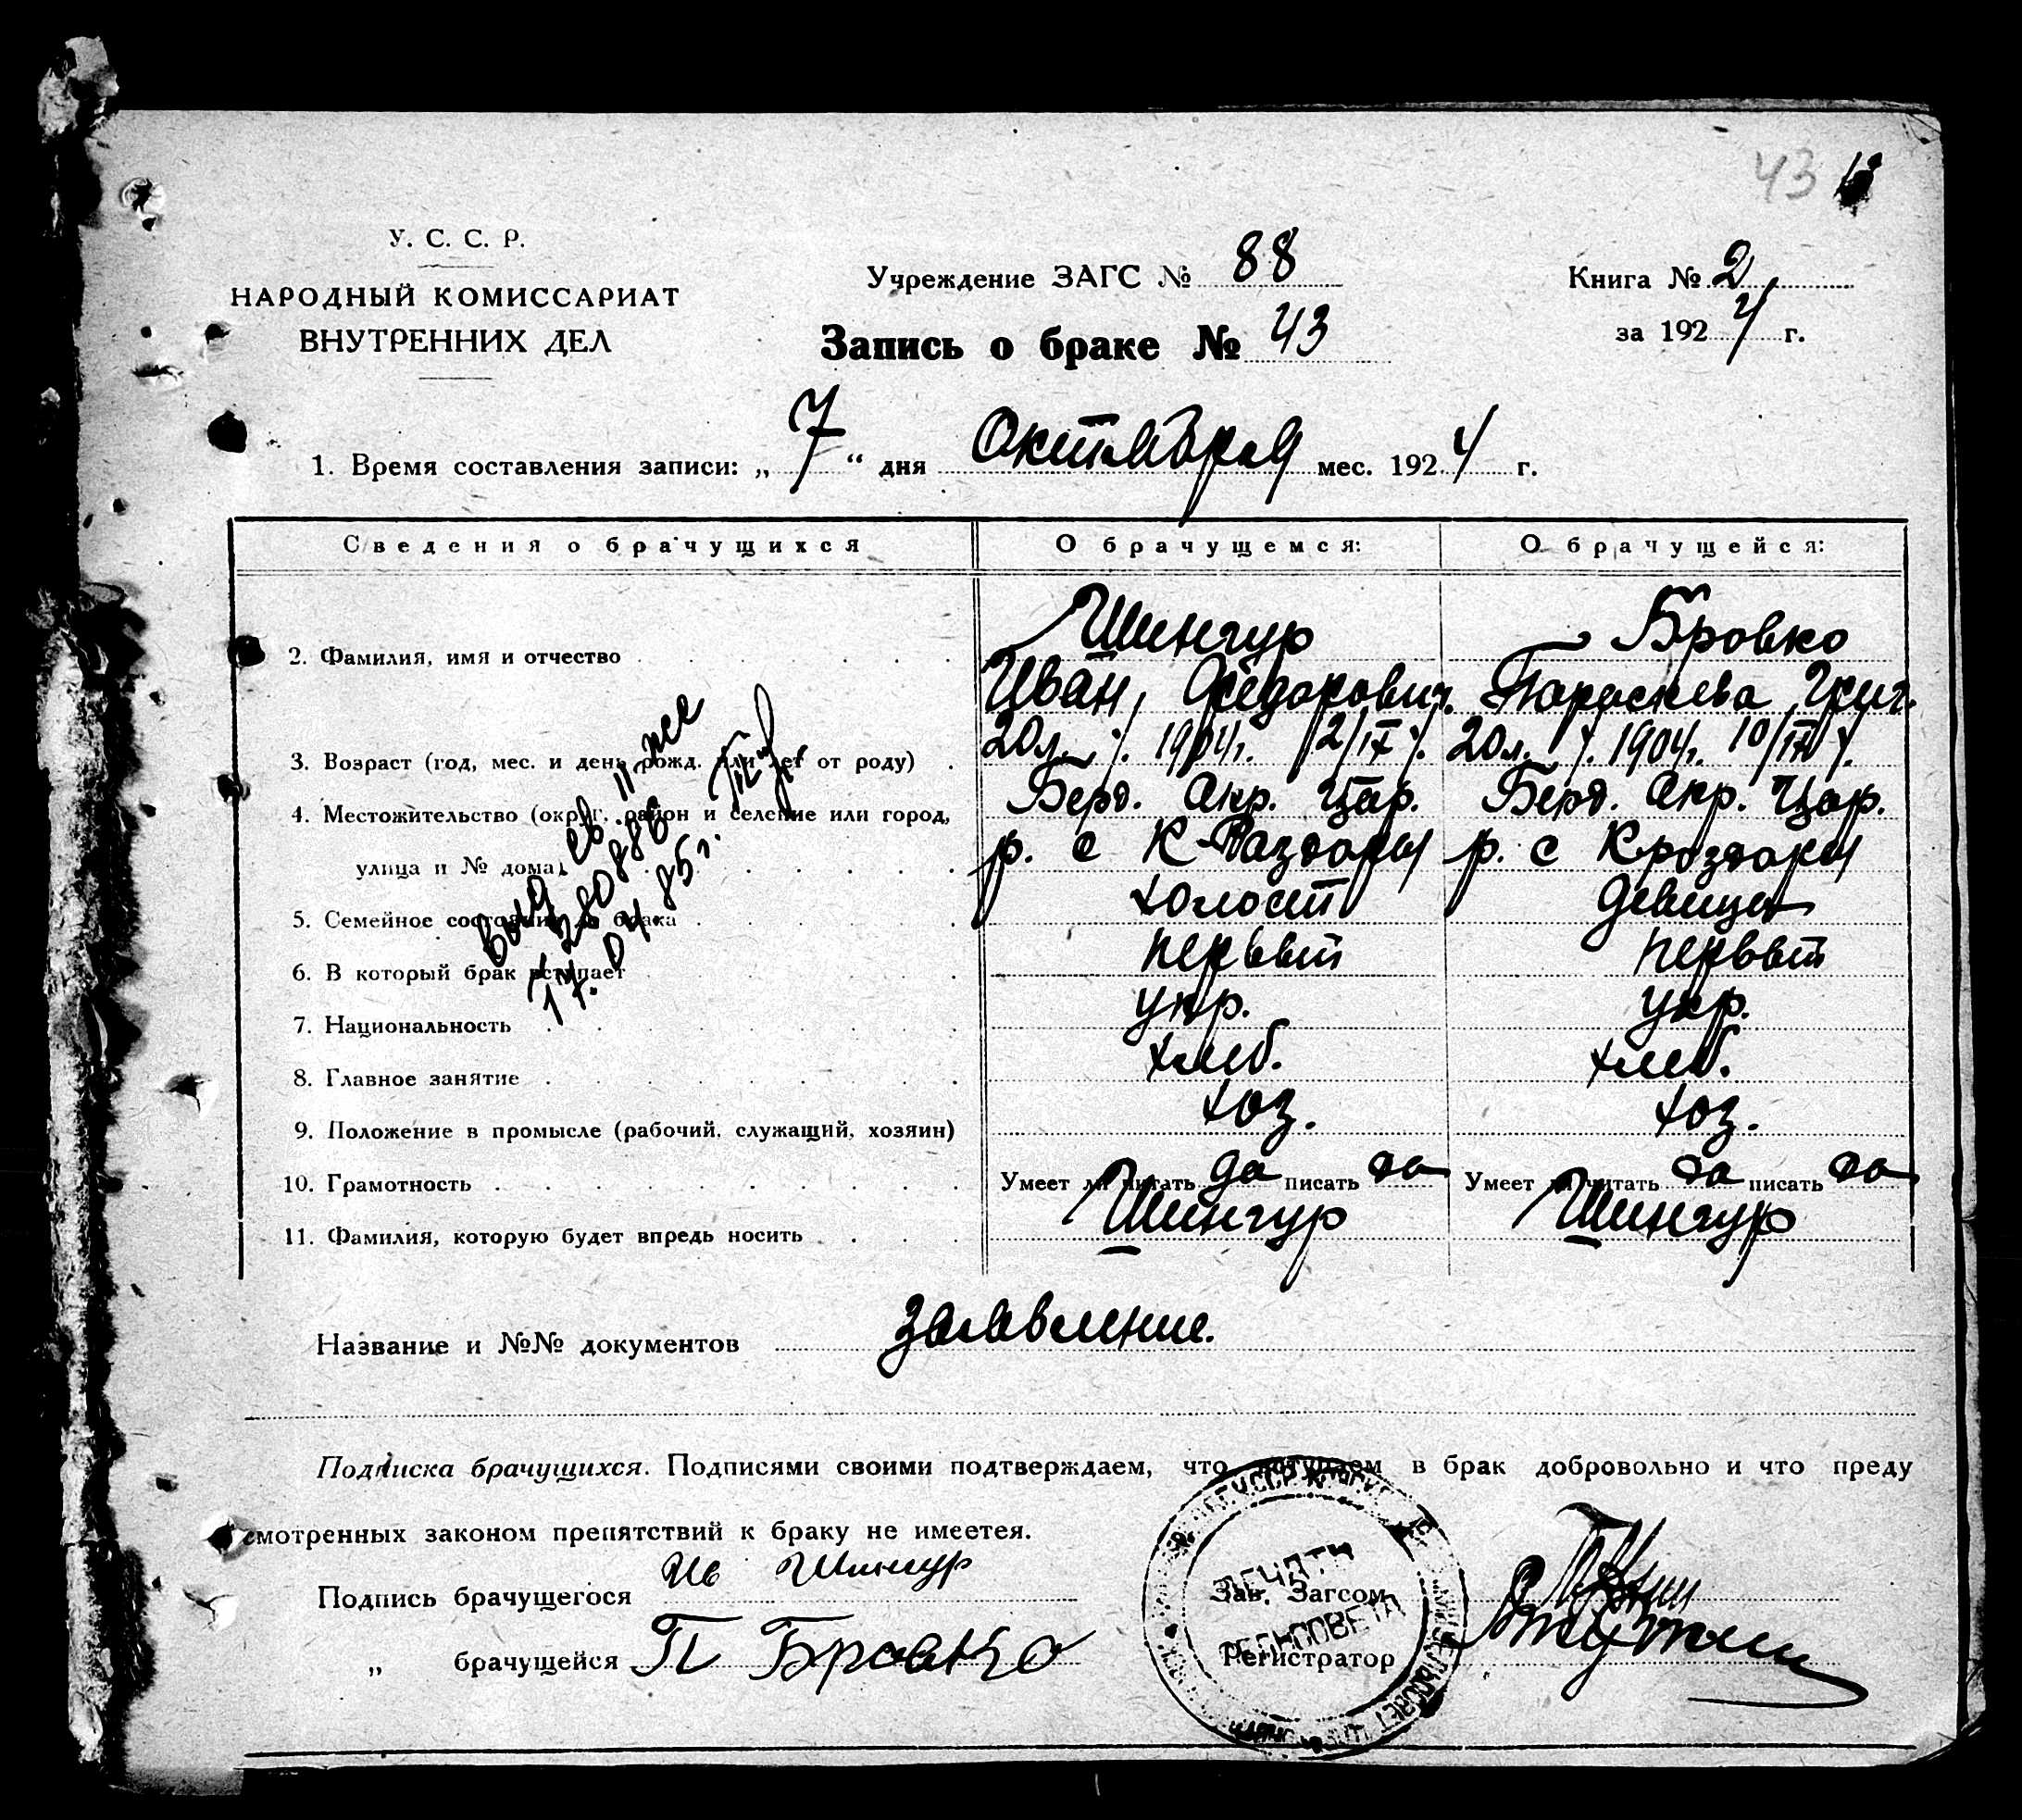 43
У. С. С. Р.
НАРОДНЫЙ КОМИССАРИАТ
ВНУТРЕННИХ ДЕЛ
Учреждение ЗАГС № 88
Книга № 2
за 1924 г.
Запись о браке № 43
1. Время составления записи: „ 7 “ дня Октября мес. 1924 г.
Сведения о брачущихся О брачущемся: О брачущейся:
Шингур Бровко
2. Фамилия, имя и отчество Иван, Федорович. Параскева Григ.
3. Возраст (год, мес. и день рожд. или лет от роду) 20 л. 1904 г. 12/IX 20 л. 1904 г. 10/IX
4. Местожительство (округ, район и селение или город, Берд. Окр. Цар. Берд. Окр. Цар.
улица и № дома) р. с К-Раздоры р. с К роздоры
5. Семейное состояние до брака холост девица
6. В который брак вступает первый первый
7. Национальность укр. укр.
8. Главное занятие хлеб. хлеб.
9. Положение в промысле (рабочий, служащий, хозяин) хоз. хоз.
10. Грамотность Умеет ли читать да писать да Умеет ли читать да писать да
11. Фамилия, которую будет впредь носить Шингур Шингур
17.04.85 г.
Название и №№ документов Заявление.
Подписка брачущихся. Подписями своими подтверждаем, что вступаем в брак добровольно и что преду
смотренных законом препятствий к браку не имеетея.
Подпись брачущегося Ив Шингур Зав. Загсом
„ брачущейся П Бровко Регистратор